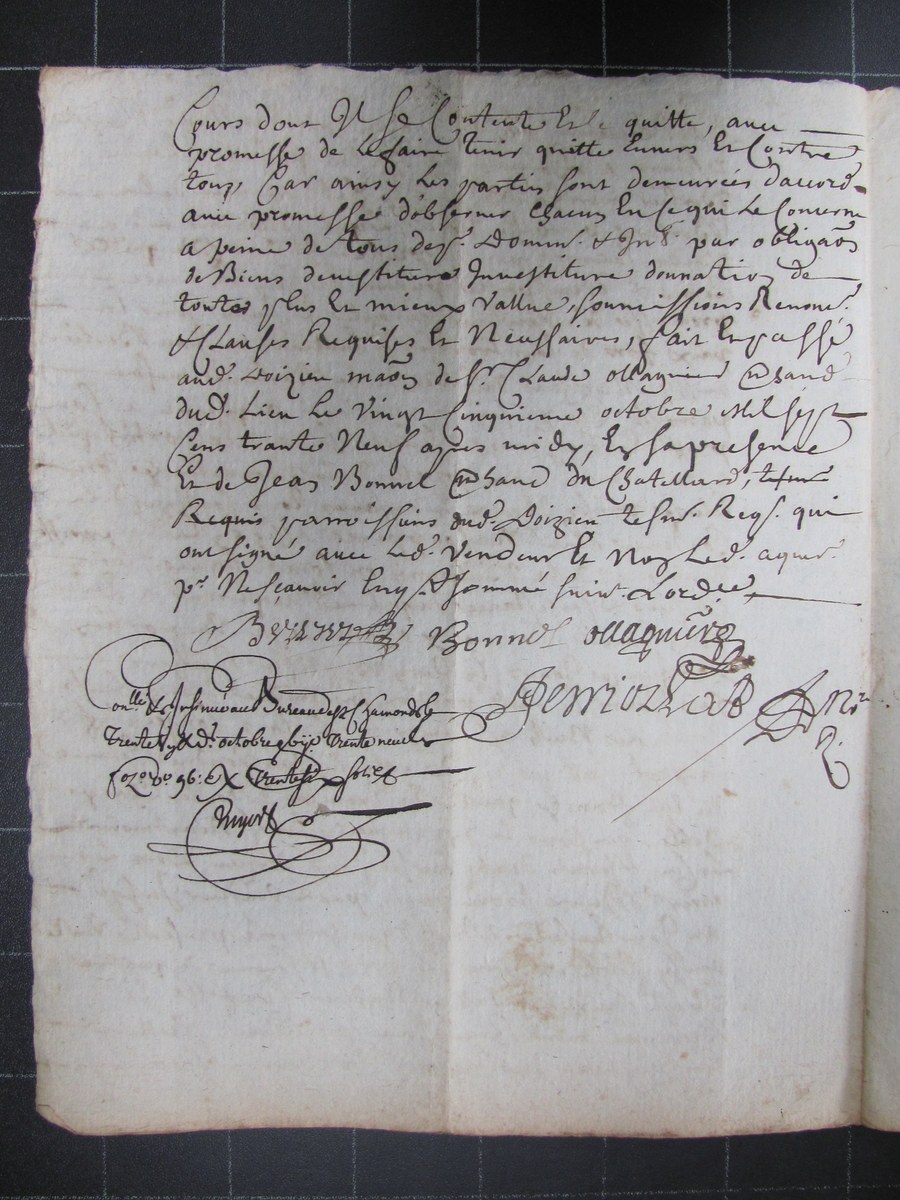 Cours dont Il se Contente Et le quitte, avec
promesse de le faire tenir quitte Envers Et Contre
tous, Car ainsy les parties sont demeurées d'accord
avec promesse d'observer chacun En ce qui le Concerne
a peine de tous des. Domm. & Int. par obligaōn
de Biens devestiture Investiture donnation de
toutes plus Et mieux vallue, soumissions Renonc.
& Clauses Requises Et Necessaires, fait Et passé
aud. Doizieu maōn de Sr. Claude ollagnier mchand
dud. Lieu le Vingt Cinquieme octobre Mil sept
Cens trante Neuf apres midy, En sa presence
Et de Jean Bonnel mchand du Chatellard,
Requis parroissiens dud. Doizieu tesm. Reqs. qui
ont signé avec led. vendeur Et Non led. aquer.
pr. Ne sçavoir Enqs. & sommé suiv. Lord.ce
Bonnel ollagnier
onlle & Insinué au Bureau de St Chamond le
trente octobre trente neuf
trente six sols